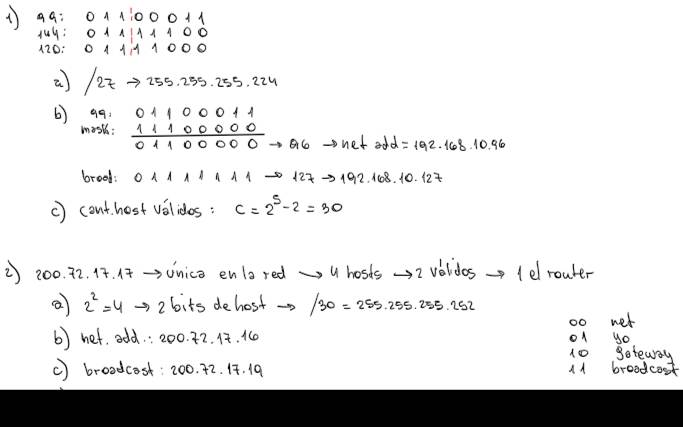 1) 99: 0 1 1 0 0 0 1 1
144: 0 1 1 1 1 1 0 0
120: 0 1 1 1 1 0 0 0
a) /27 → 255.255.255.224
b) 99: 0 1 1 0 0 0 1 1
mask: 1 1 1 0 0 0 0 0
0 1 1 0 0 0 0 0 → 96 → net add = 192.168.10.96
broad: 0 1 1 1 1 1 1 1 → 127 → 192.168.10.127
c) cant. host válidos : C = 2^5 - 2 = 30
2) 200.72.17.17 → única en la red → 4 hosts → 2 válidos → 1 el router
a) 2^2 = 4 → 2 bits de host → /30 = 255.255.255.252
b) net. add.: 200.72.17.16
c) broadcast : 200.72.17.19
00 net
01 yo
10 gateway
11 broadcast